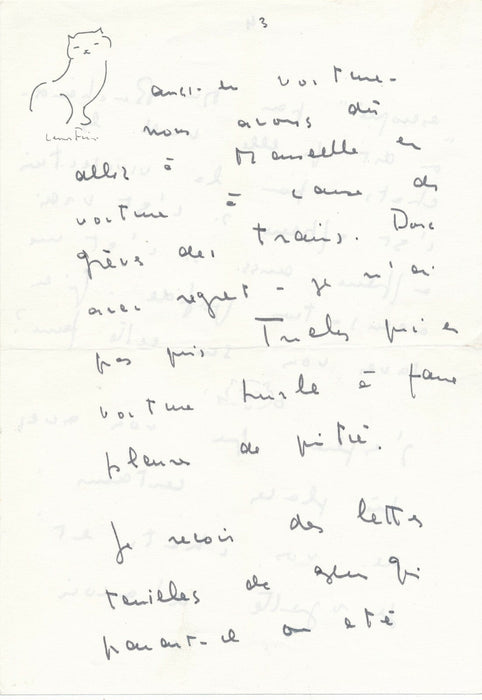 3
Leonor Fini
aussi en voiture -
nous avons dû
aller à Marseille en
voiture à cause de
grève des trains. Donc
avec regret - je n'ai
pas pris qui en
voiture hurle à faire
pleurer de pitié.
Je reçois des lettres
terribles de gens qui
parait-il ont été